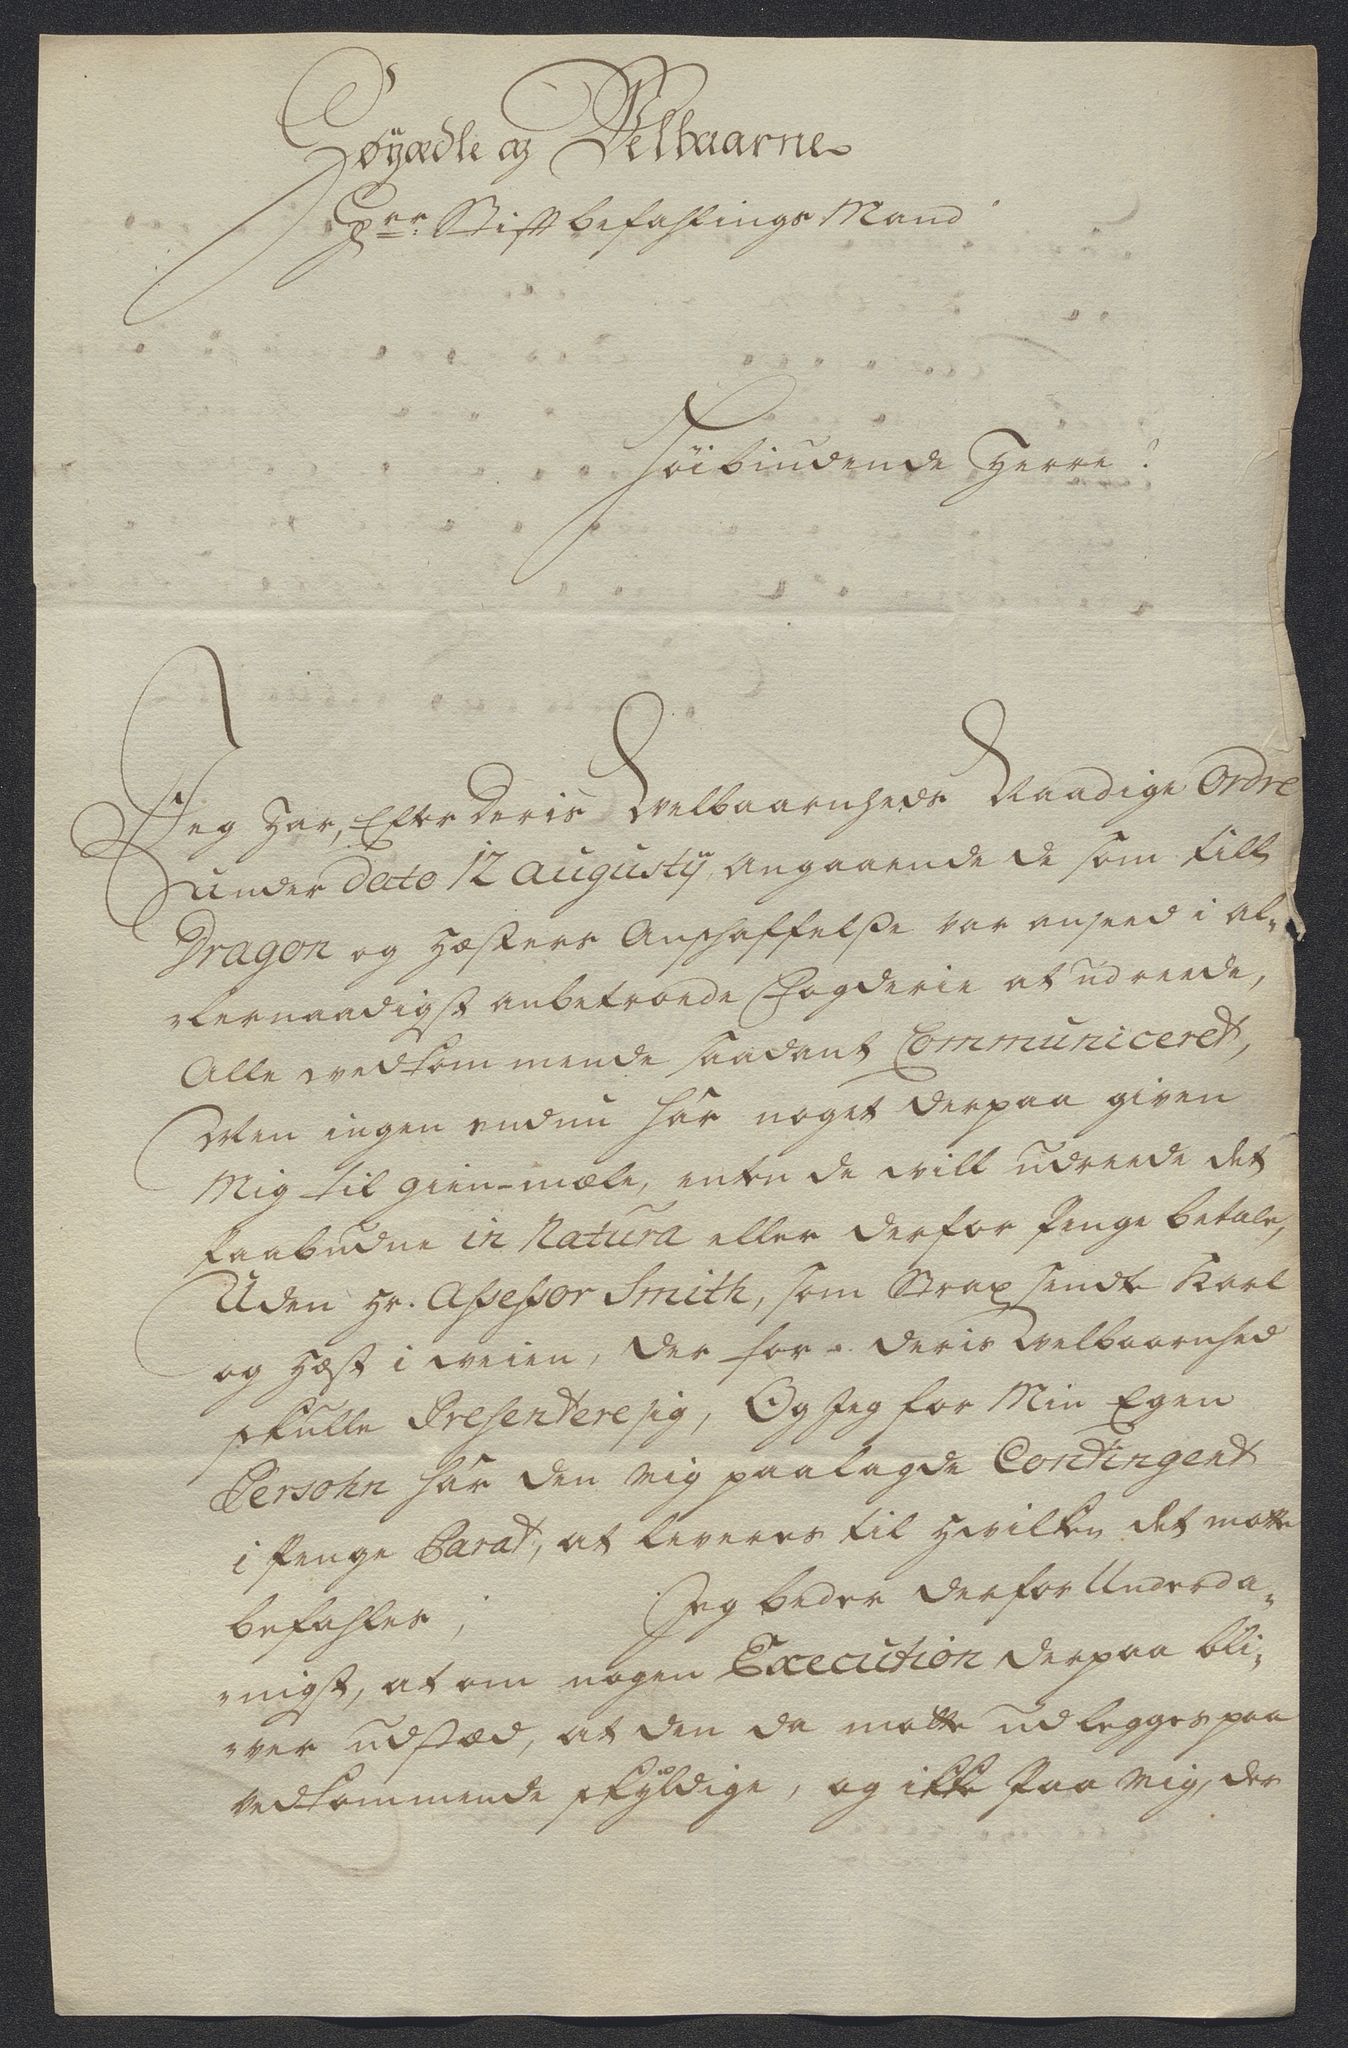 Höyædle og Velbaarne
Herr: Stiftbefahlings Mand
Höibiudende Herre!
Jeg har, Efter Deris Welbaarnheds Naadige Ordre
under dato 12 augustij, angaaende de som till
Dragon og hæsters Anschaffelse var anseed i al-
lernaadigst anbetroede Fogderie at udreede,
Alle wedkommende saadant Communiceret,
Men ingen endnu har noget derpaa given
Mig til gien-mæle, enten de will udreede det
paabudne in Natura eller derfor penge betale,
Uden Hr. Assessor Smith, som Strax sendte Karl
og hæst i weien, der for Deris Welbaarnhed
skulle Presentere sig, Og Jeg for Min Egen
Persohn har den mig paalagde Contingent
i penge Parat, at leveres til hwilken det motte
befahles; Jeg beder derfor Underda-
nigst, at om nogen Execution derpaa bli-
ver udstæd, at den da motte udlegges paa
vedkommende skyldige, og ikke paa mig, der